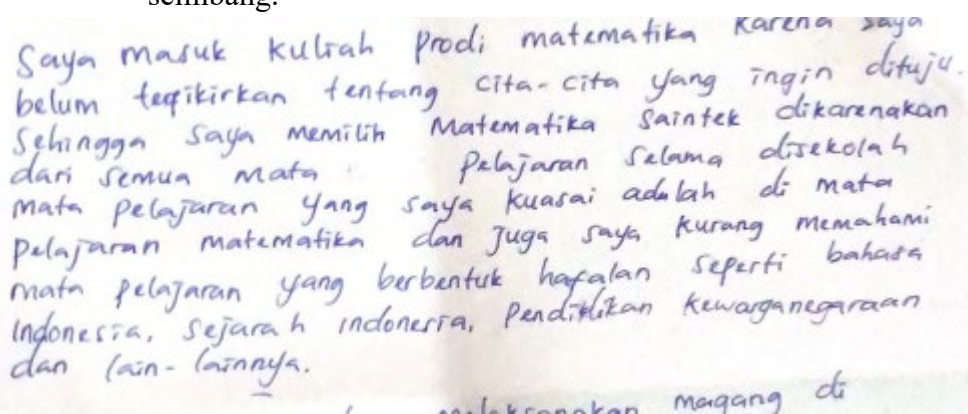 seimbang.
Saya masuk kuliah Prodi matematika karena saya
belum terfikirkan tentang cita-cita yang ingin dituju.
Sehingga saya memilih Matematika Saintek dikarenakan
dari semua mata Pelajaran Selama disekolah
mata pelajaran yang saya kuasai adalah di mata
pelajaran matematika dan juga saya kurang memahami
mata pelajaran yang berbentuk hafalan seperti bahasa
indonesia, sejarah indonesia, Pendidikan kewarganegaraan
dan lain-lainnya.
magang di